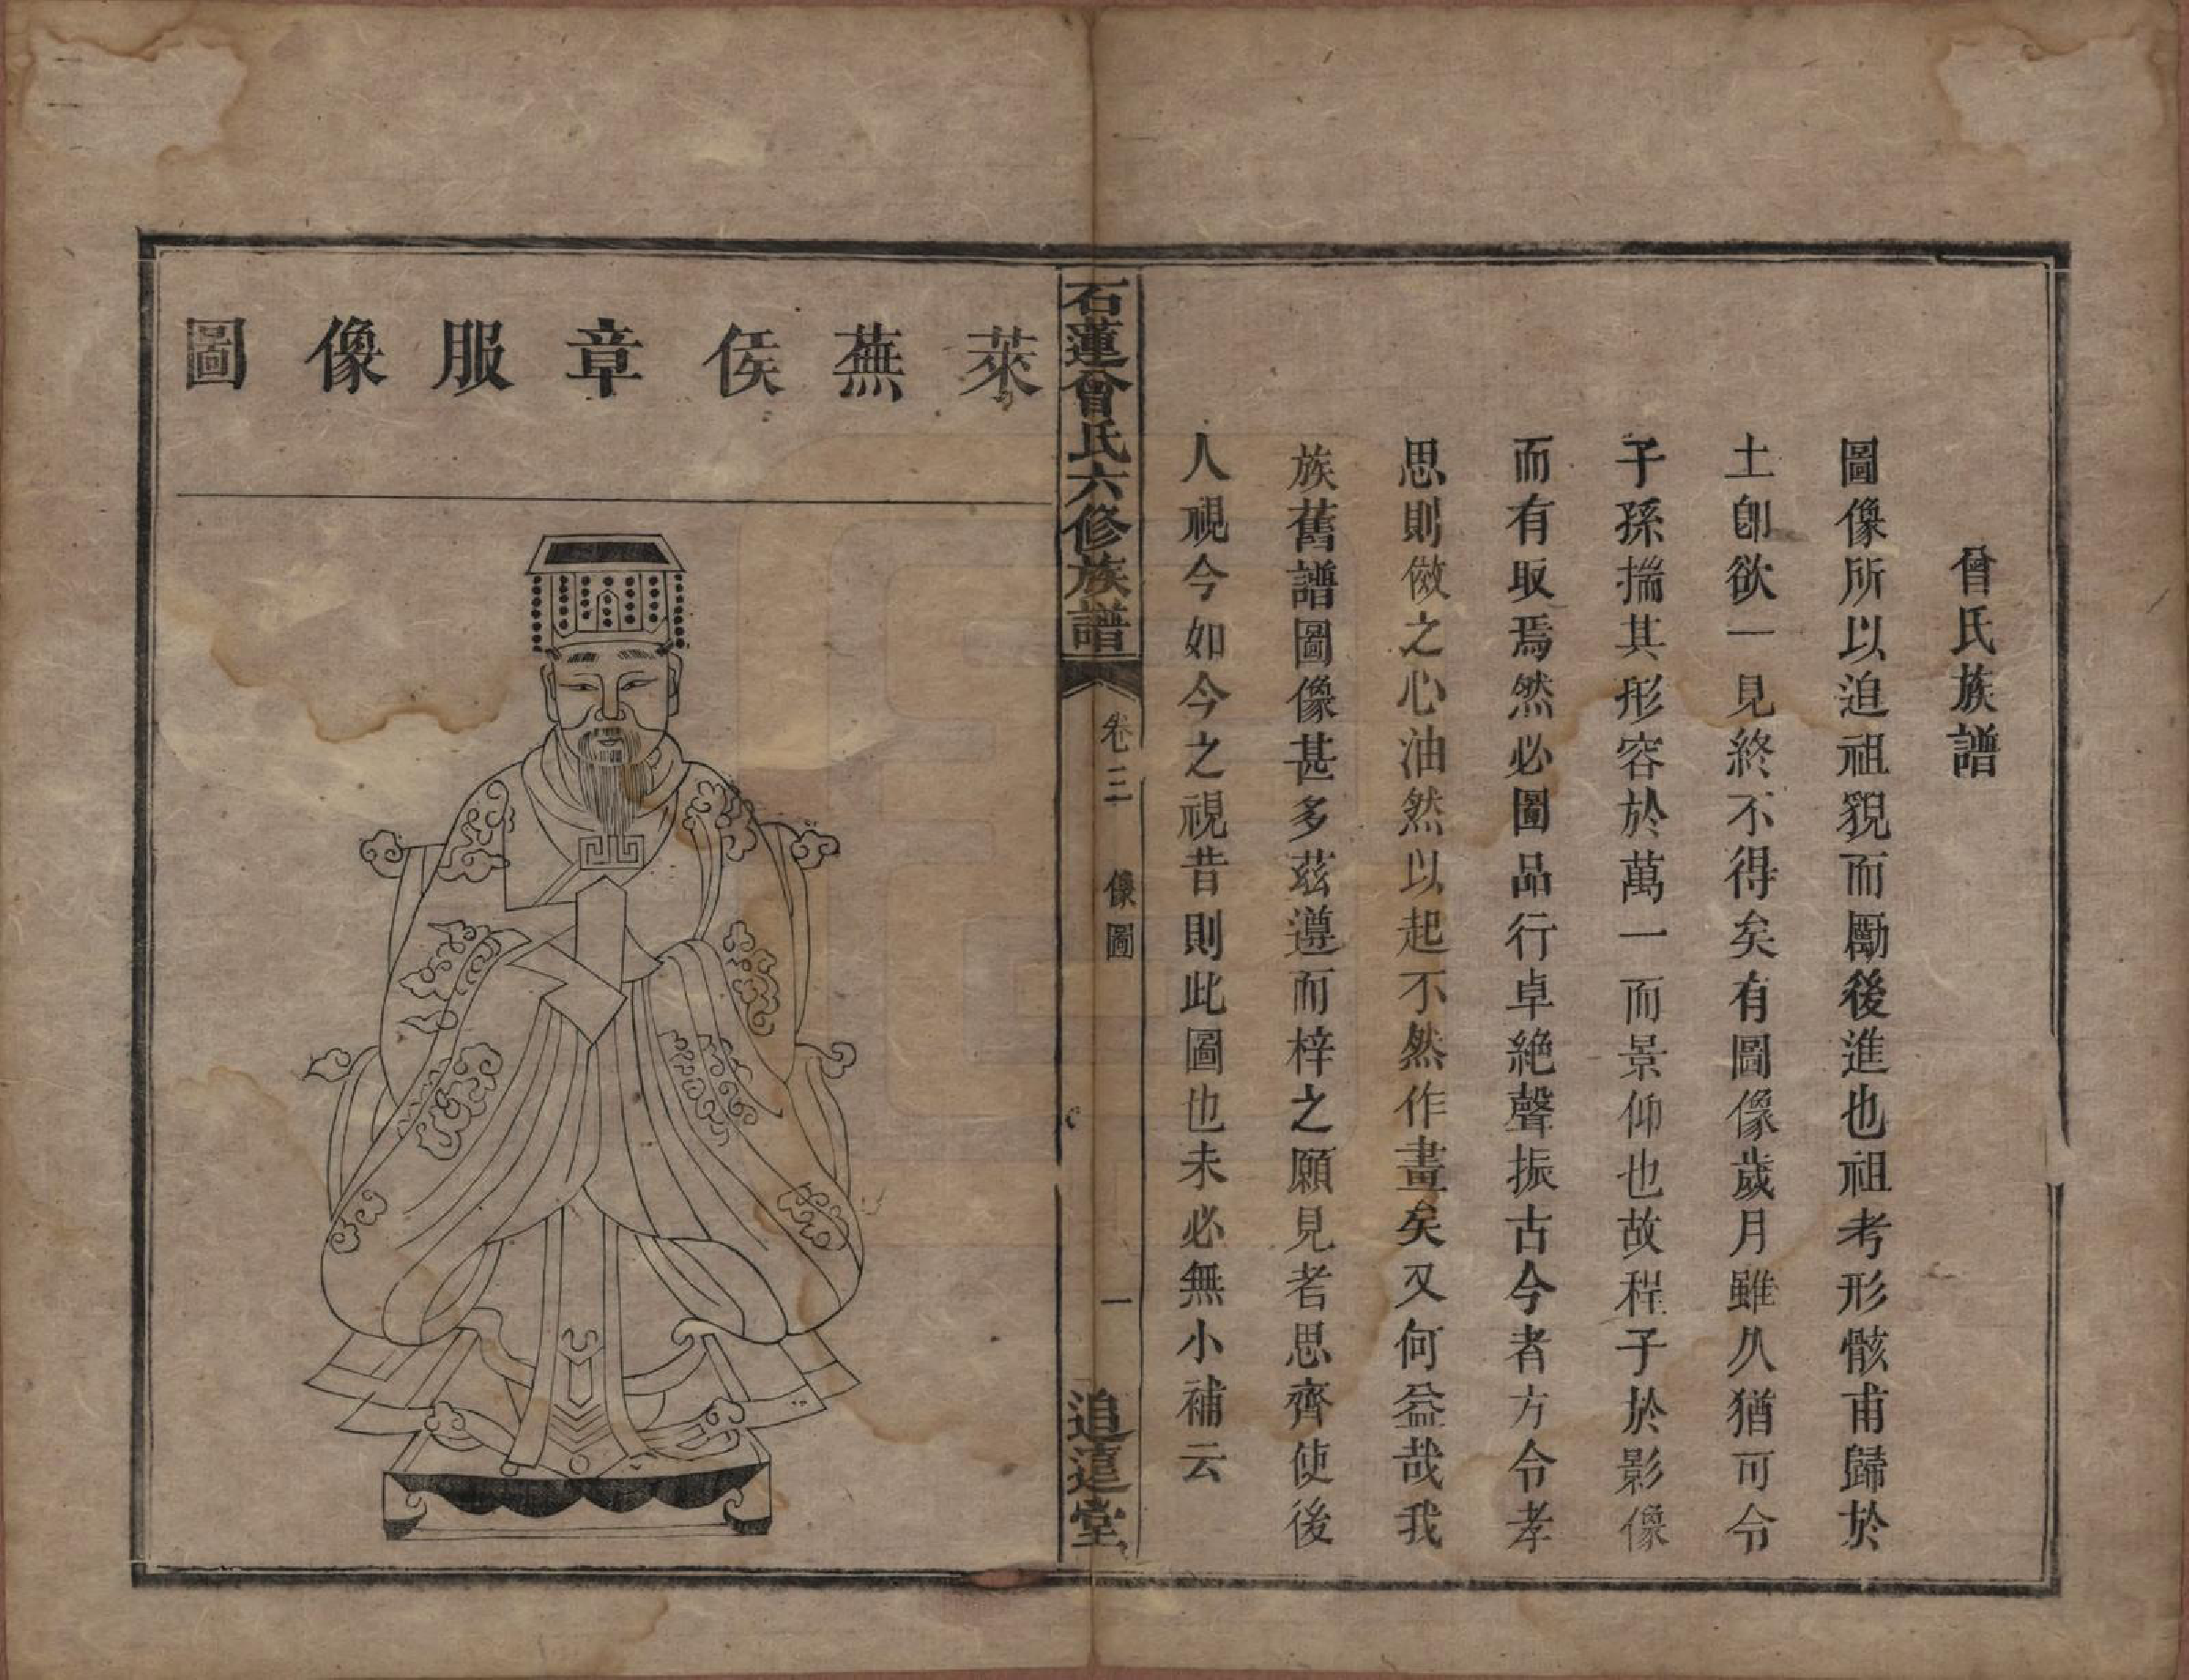 曾氏族譜
圖像所以追祖貌而勵後進也祖考形骸甫歸於
土卽欲一見終不得矣有圖像歲月雖久猶可令
子孫揣其形容於萬一而景仰也故程子於影像
而有取焉然必圖品行卓絕聲振古今者方令孝
思則傚之心油然以起不然作畫矣又何益哉我
族舊譜圖像甚多茲遵而梓之願見者思齊使後
人視今如今之視昔則此圖也未必無小補云
石蓮曾氏六修族譜
卷三 像圖
一
追遠堂
萊蕪侯章服像圖